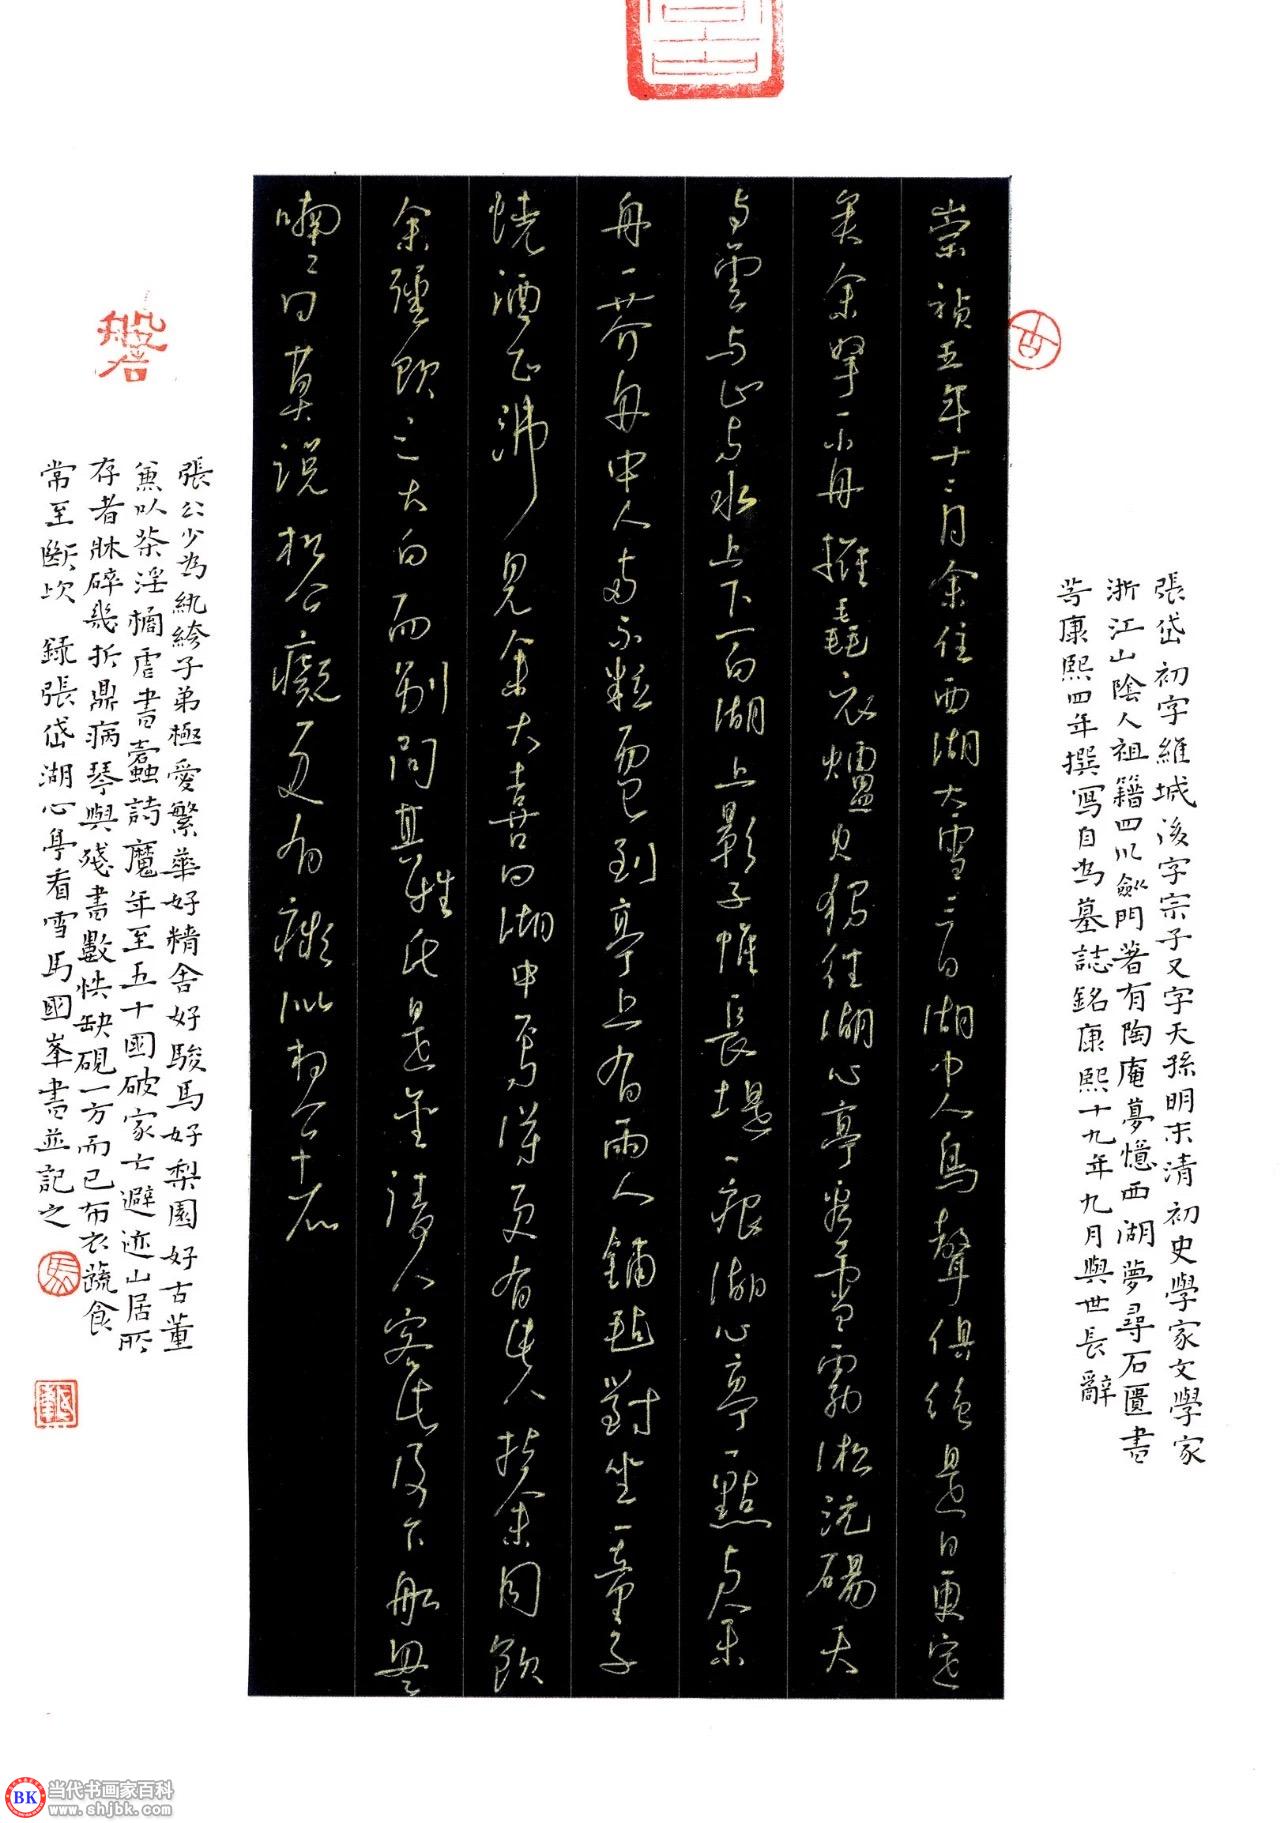 張岱初字維城後字宗子又字天孫明末清初史學家文學家
浙江山陰人祖籍四川劍門著有陶庵夢憶西湖夢尋石匱書
等康熙四年撰寫自為墓誌銘康熙十九年九月與世長辭
崇禎五年十二月余住西湖大雪三日湖中人鳥聲俱絕是日更定
矣余拏一小舟擁毳衣爐火獨往湖心亭看雪霧淞沆碭天
與雲與山與水上下一白湖上影子惟長堤一痕湖心亭一點與余
舟一芥舟中人兩三粒而已到亭上有兩人鋪氈對坐一童子
燒酒正沸見余大喜曰湖中焉得更有此人拉余同飲
余強飲三大白而別問其姓氏是金陵人客此及下船舟子
喃喃曰莫說相公癡更有癡似相公者
張公少為紈絝子弟極愛繁華好精舍好駿馬好梨園好古董
兼以茶淫橘虐書蠹詩魔年至五十國破家亡避迹山居所
存者牀碎幾折鼎病琴與殘書數帙缺硯一方而已布衣蔬食
常至斷炊 錄張岱湖心亭看雪馬國峯書並記之
BK 当代书画家百科
www.shjbk.com